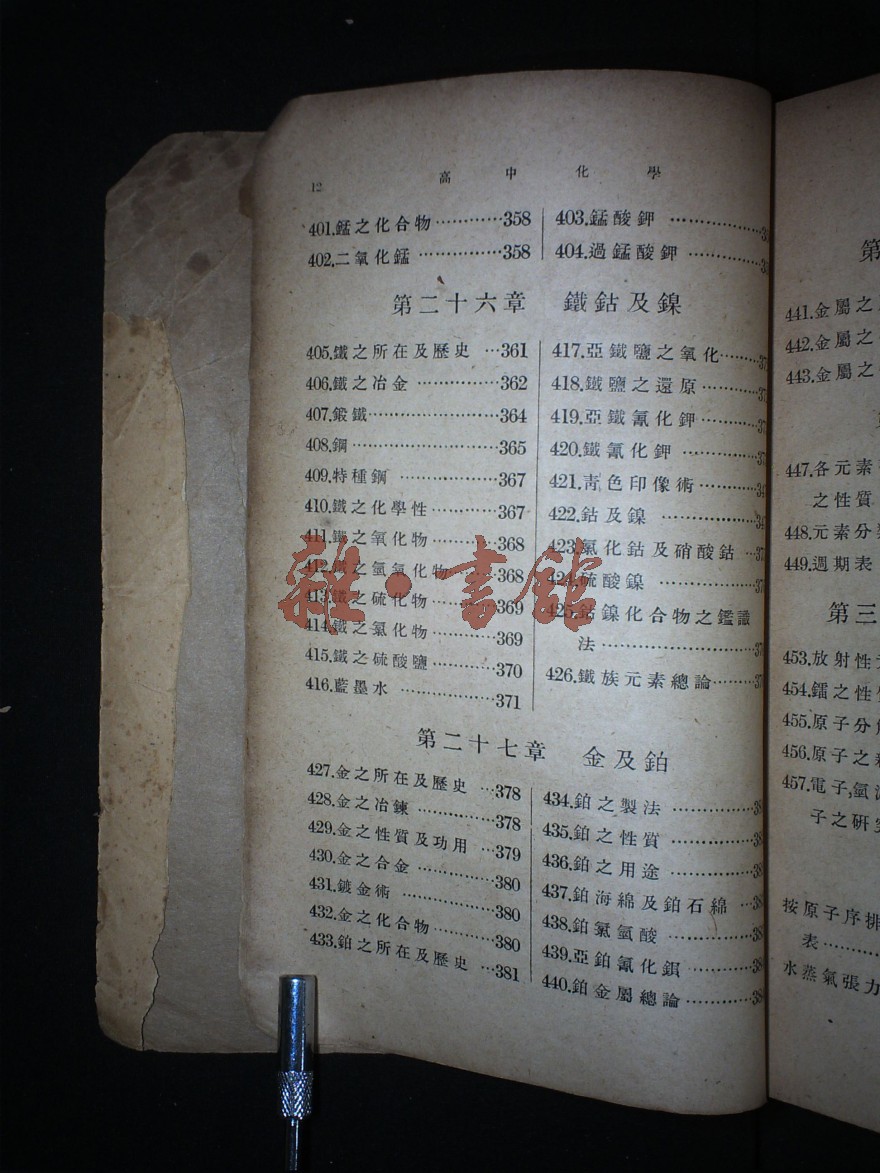 12 高中化學
401.錳之化合物…………358
402.二氧化錳……………358
403.錳酸鉀……………
404.過錳酸鉀……………
第二十六章 鐵鈷及鎳
405.鐵之所在及歷史…361
406.鐵之冶金……………362
407.鍛鐵……………………364
408.鋼………………………365
409.特種鋼………………367
410.鐵之化學性…………367
411.鐵之氧化物…………368
412.鐵之氫氧化物………368
413.鐵之硫化物…………369
414.鐵之氯化物…………369
415.鐵之硫酸鹽…………370
416.藍墨水………………371
417.亞鐵鹽之氧化………
418.鐵鹽之還原…………
419.亞鐵氰化鉀…………
420.鐵氰化鉀……………
421.靑色印像術…………
422.鈷及鎳………………
423.氯化鈷及硝酸鈷…
424.硫酸鎳………………
425.鈷鎳化合物之鑑識
法………………………
426.鐵族元素總論………
第二十七章 金及鉑
427.金之所在及歷史…378
428.金之冶鍊……………378
429.金之性質及功用…379
430.金之合金……………380
431.鍍金術………………380
432.金之化合物…………380
433.鉑之所在及歷史…381
434.鉑之製法……………
435.鉑之性質……………
436.鉑之用途……………
437.鉑海綿及鉑石綿…
438.鉑氯氫酸……………
439.亞鉑氰化鋇…………
440.鉑金屬總論…………
第
441.金屬之
442.金屬之
443.金屬之
447.各元素
之性質
448.元素分
449.週期表
第三
453.放射性
454.鐳之性
455.原子分
456.原子之
457.電子,氫
子之研
按原子序排
表………
水蒸氣張力
雜·書館